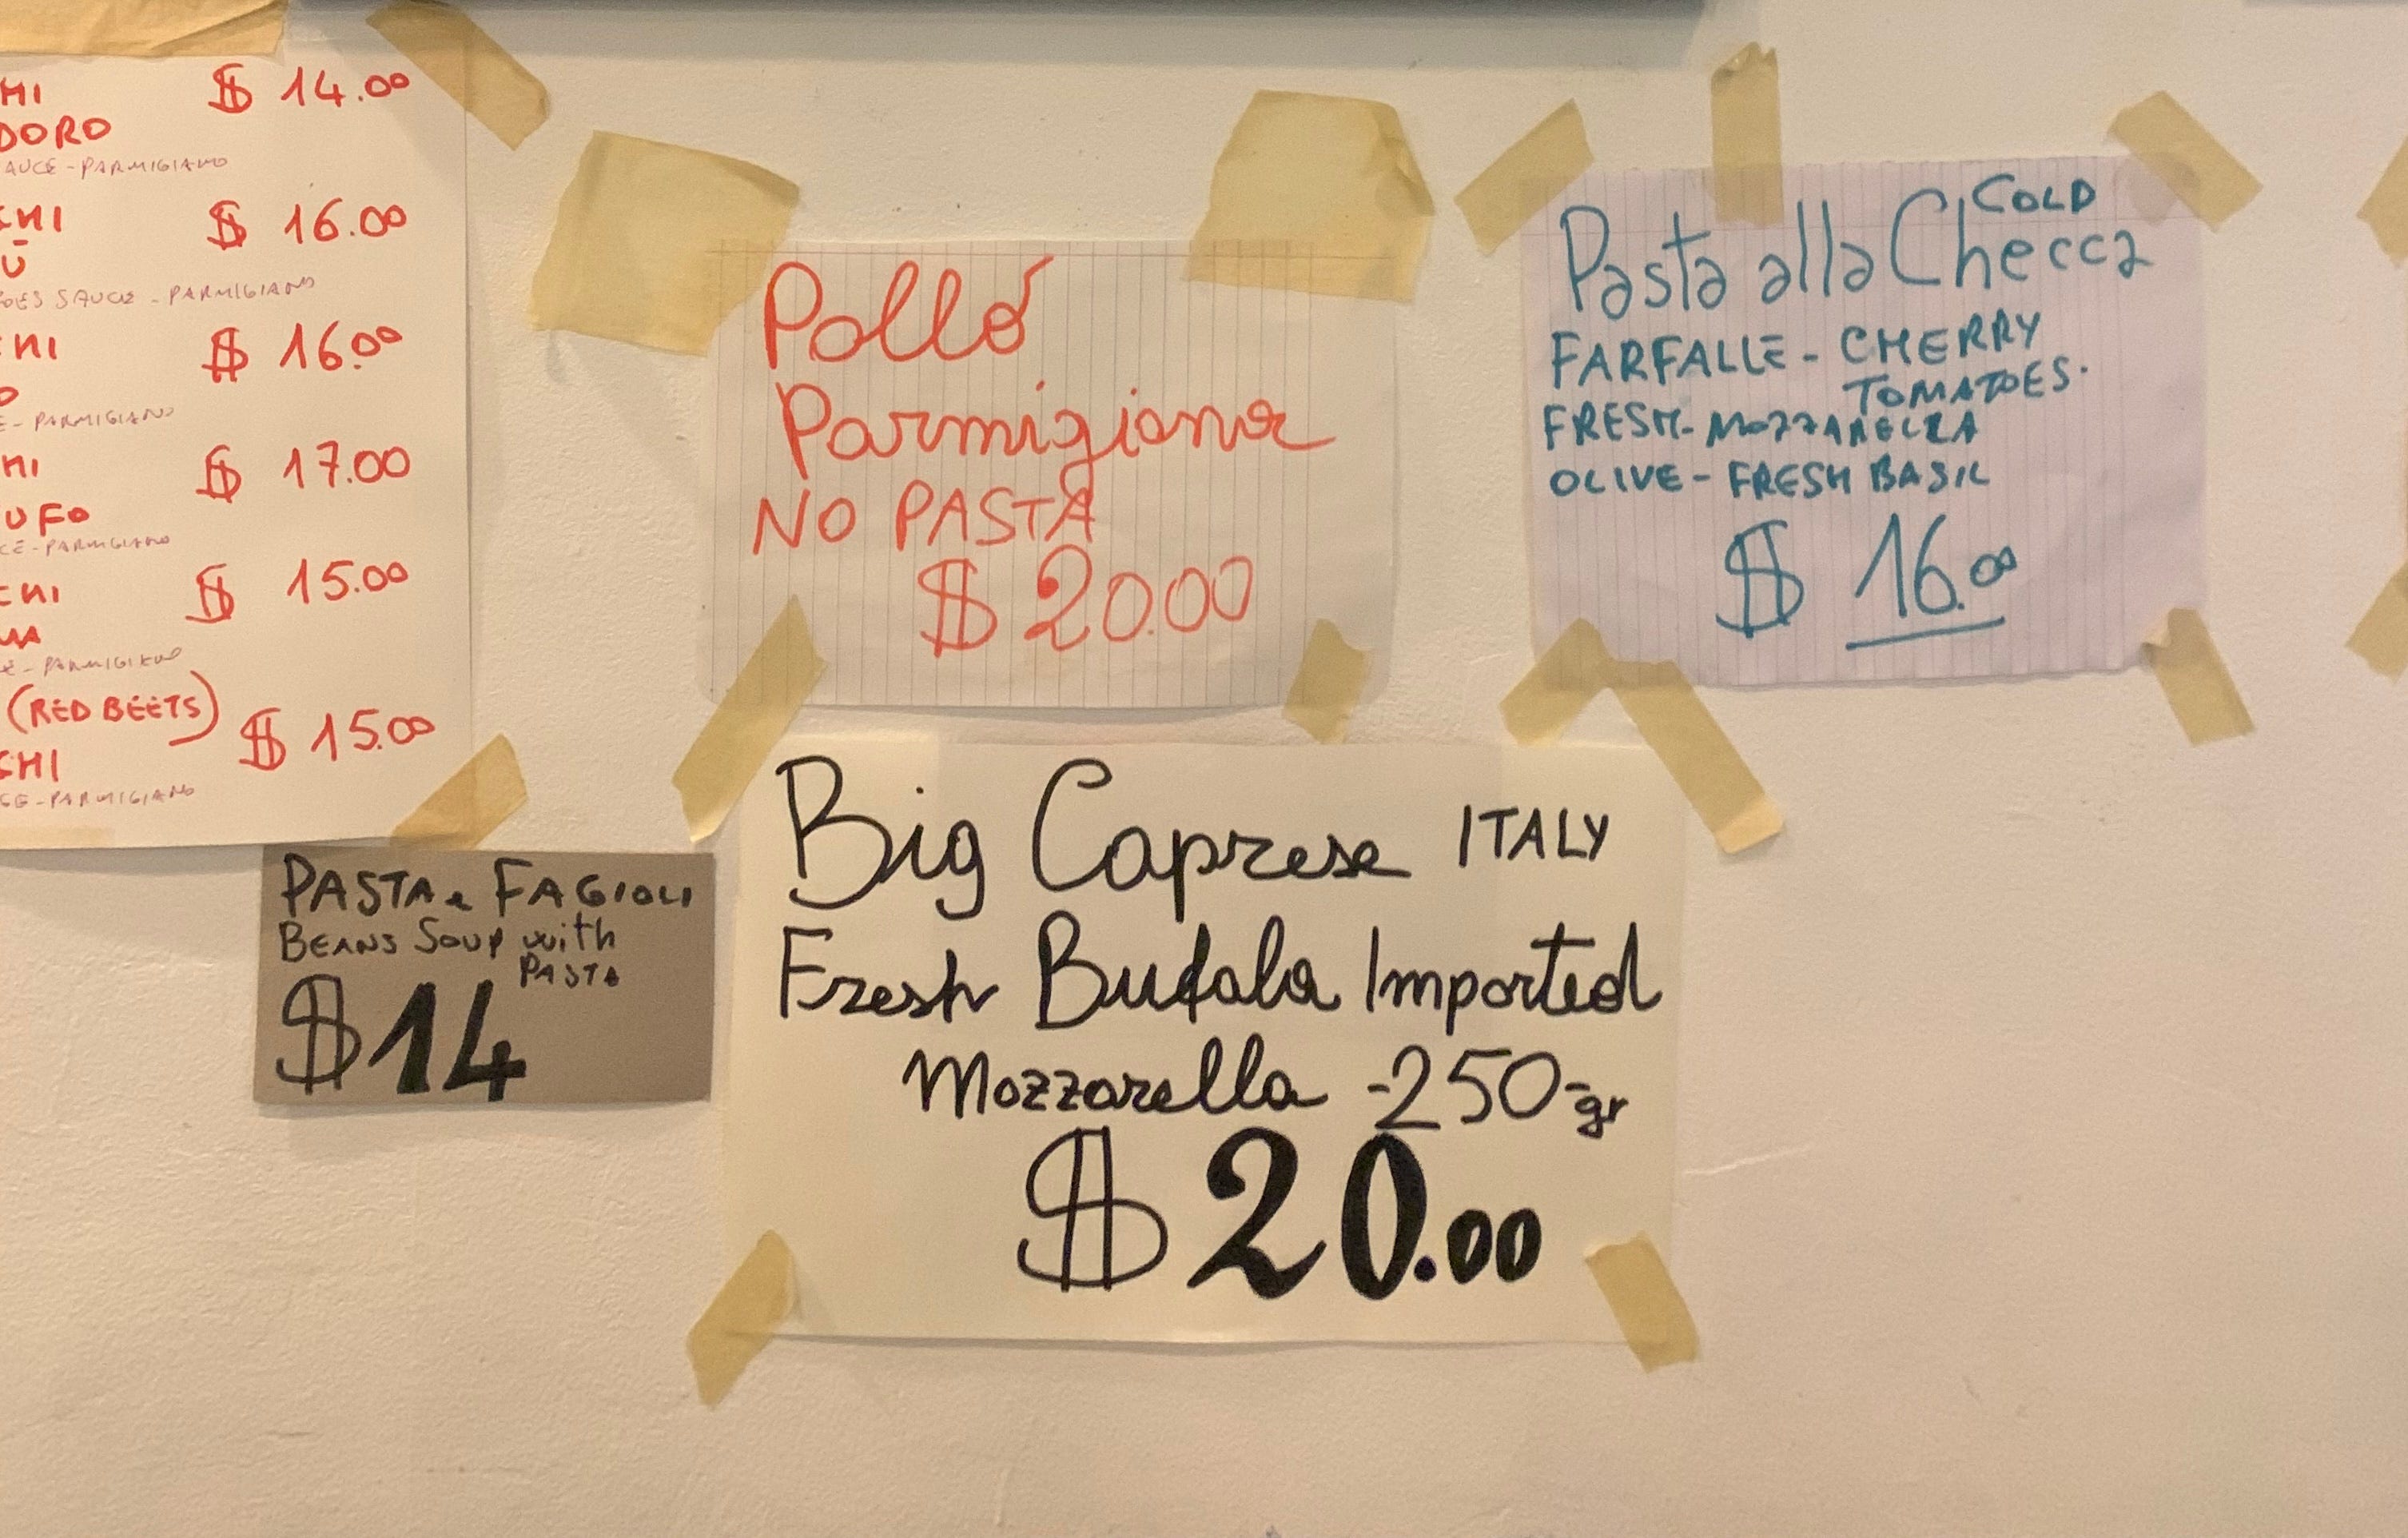 $ 14.00
DORO
SAUCE - PARMIGIANO
$ 16.00
TOES SAUCE - PARMIGIANO
$ 16.00
- PARMIGIANO
$ 17.00
UFO
- PARMIGIANO
$ 15.00
- PARMIGIANO
(RED BEETS)
$ 15.00
- PARMIGIANO
PASTA e FAGIOLI
BEANS SOUP with
PASTA
$14
Pollo
Parmigiana
NO PASTA
$ 20.00
COLD
Pasta alla Checca
FARFALLE - CHERRY
TOMATOES.
FRESH - MOZZARELLA
OLIVE - FRESH BASIL
$ 16.00
Big Caprese ITALY
Fresh Bufala Imported
Mozzarella - 250 - gr
$ 20.00